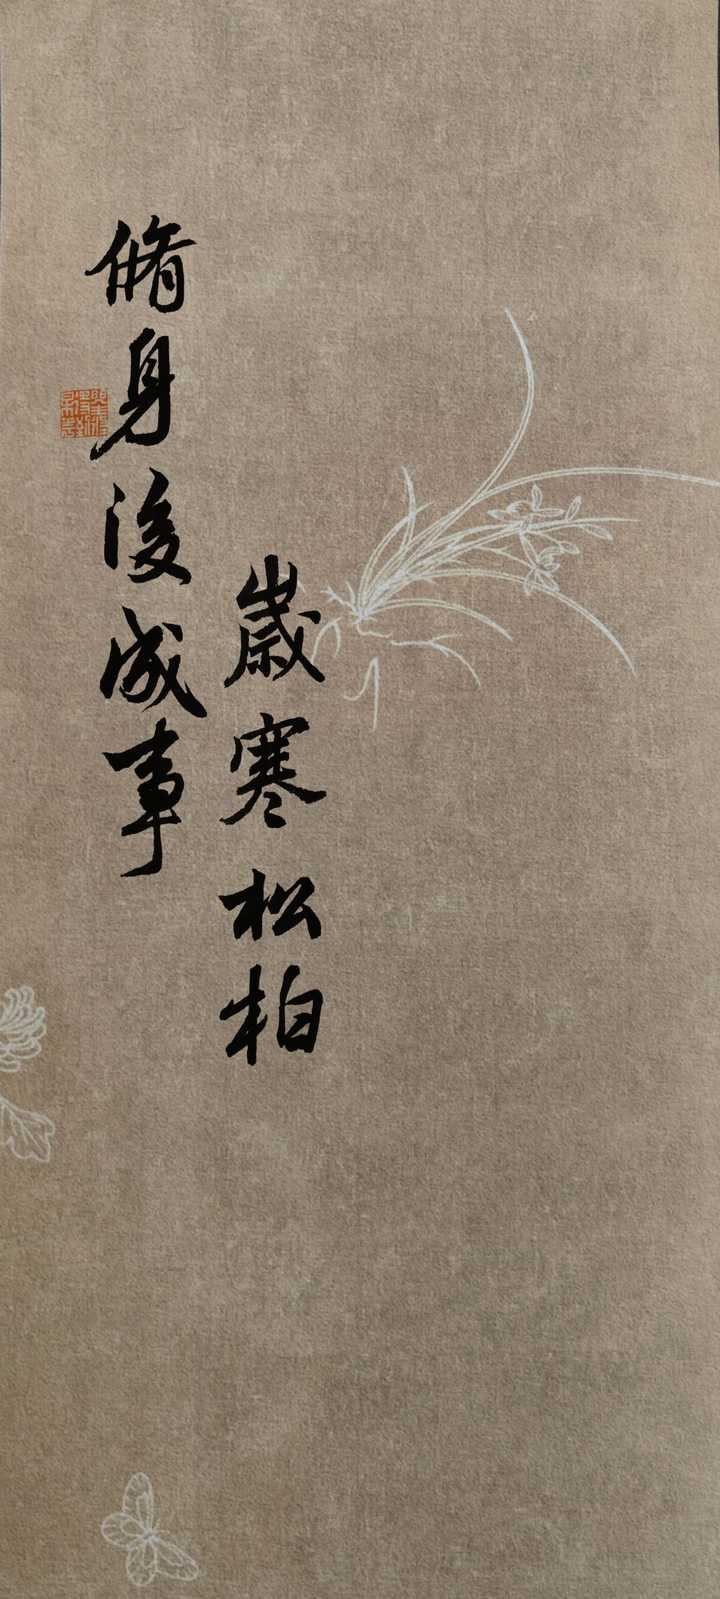 歲寒松柏
脩身後成事